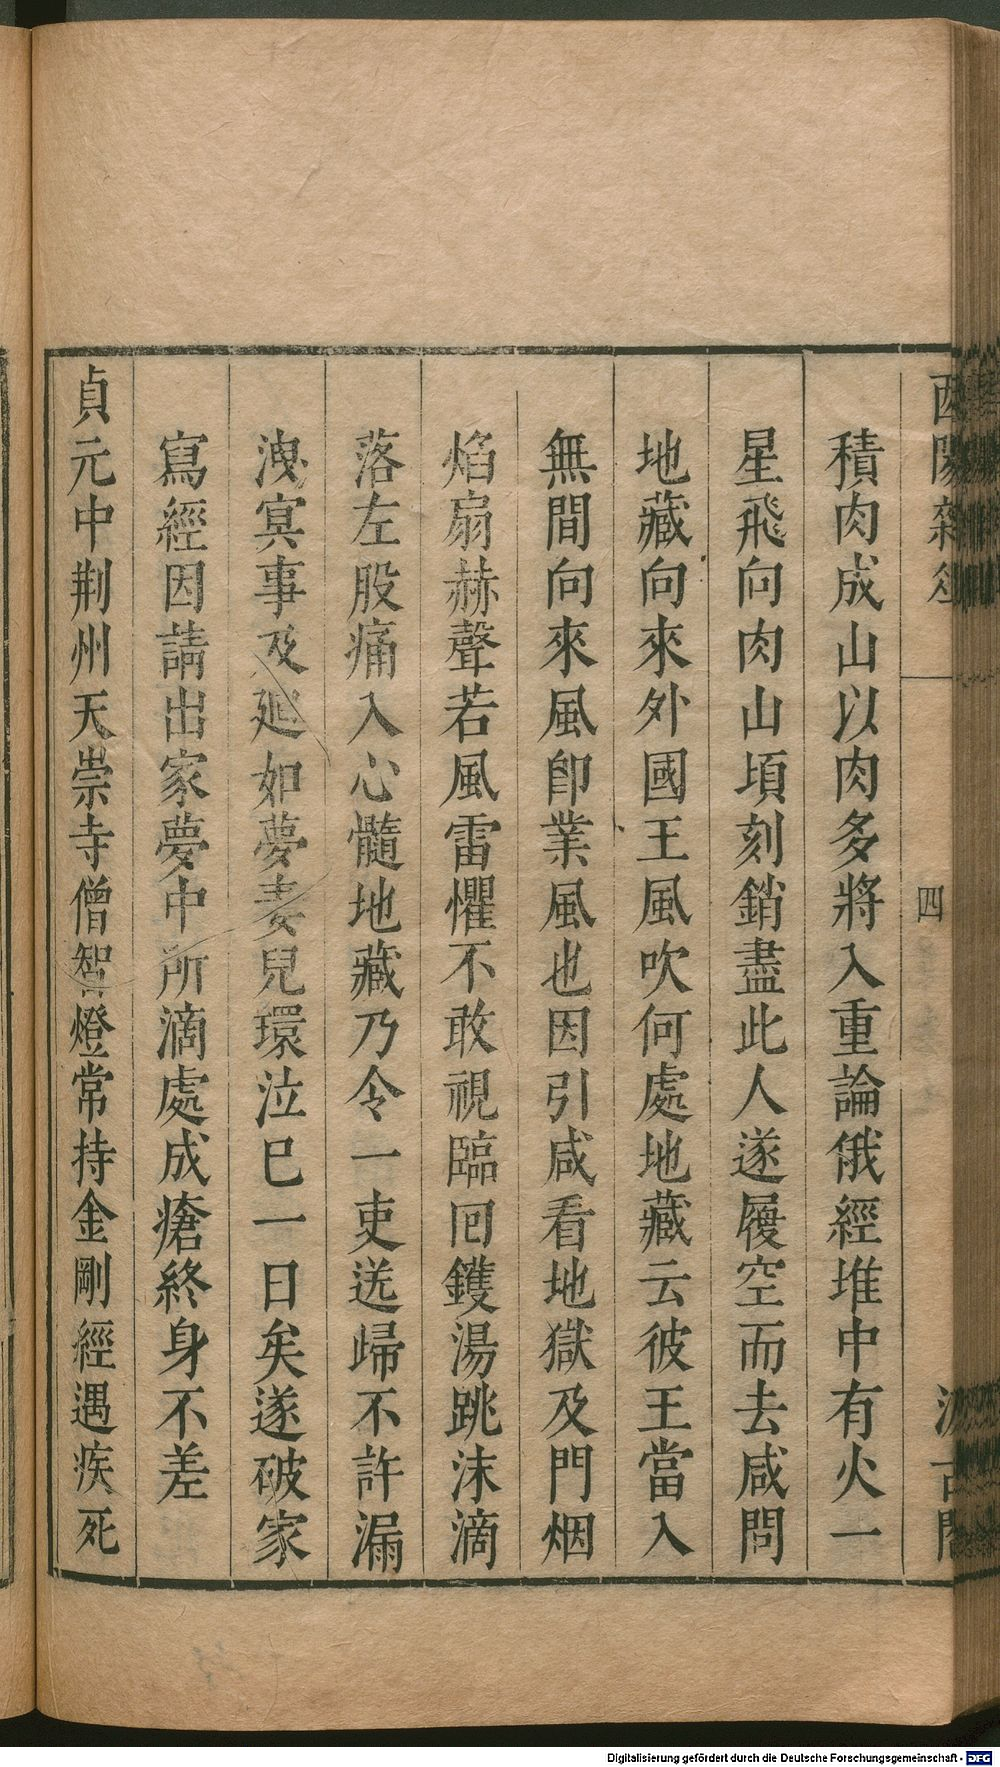 酉陽雜俎
四
汲古閣
積肉成山以肉多將入重論俄經堆中有火一
星飛向肉山頃刻銷盡此人遂履空而去咸問
地藏向來外國王風吹何處地藏云彼王當入
無間向來風卽業風也因引咸看地獄及門烟
焰扇赫聲若風雷懼不敢視臨囘鑊湯跳沫滴
落左股痛入心髓地藏乃令一吏送歸不許漏
洩寞事及廻如夢妻兒環泣巳一日矣遂破家
寫經因請出家夢中所滴處成瘡終身不差
貞元中荆州天崇寺僧智燈常持金剛經遇疾死
Digitalisierung gefördert durch die Deutsche Forschungsgemeinschaft - DFG